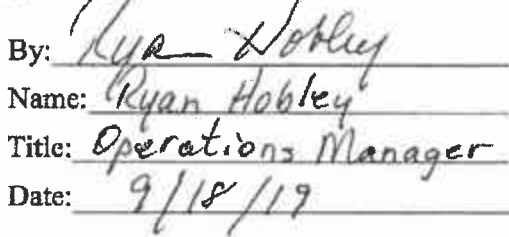 By: Ryan Hobley
Name: Ryan Hobley
Title: Operations Manager
Date: 9/18/19